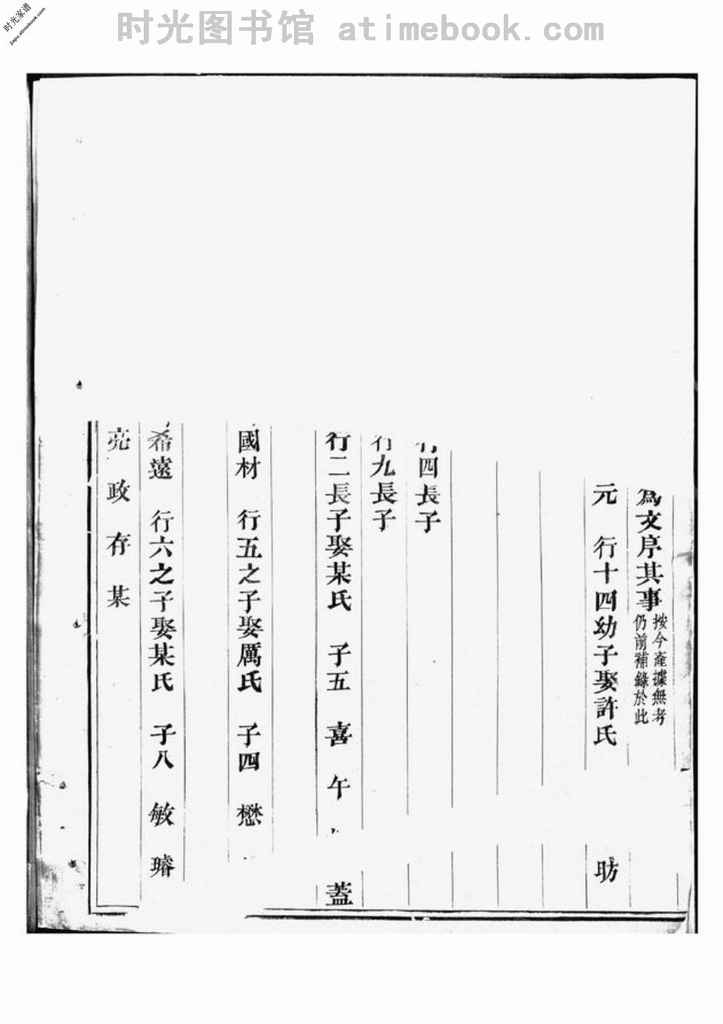 时光图书馆 atimebook.com
时光家谱
jiapu.atimebook.com
為文序其事 按今產據無考
仍前補錄於此
元 行十四幼子娶許氏 昉
行四長子
行九長子
行二長子娶某氏 子五 喜 午 蓋
國材 行五之子娶厲氏 子四 懋
希遠 行六之子娶某氏 子八 敏 璿
亮 政 存 某